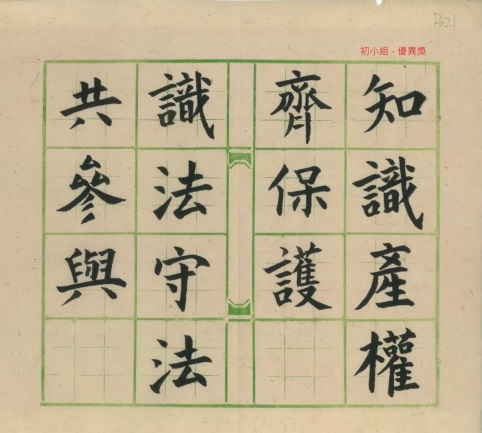 初小組 - 優異獎
B21
知識產權
齊保護
識法守法
共參與